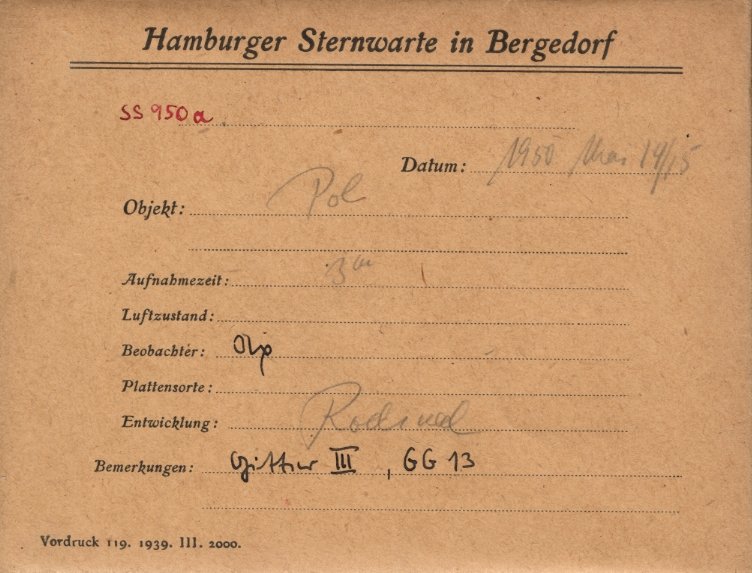 Hamburger Sternwarte in Bergedorf
SS 950a
Datum: 1950 Mai 14/15
Objekt: Pol
Aufnahmezeit: 3m
Luftzustand:
Beobachter:
Plattensorte:
Entwicklung: Rodinal
Bemerkungen: Gitter III, GG 13
Vordruck 119. 1939. III. 2000.